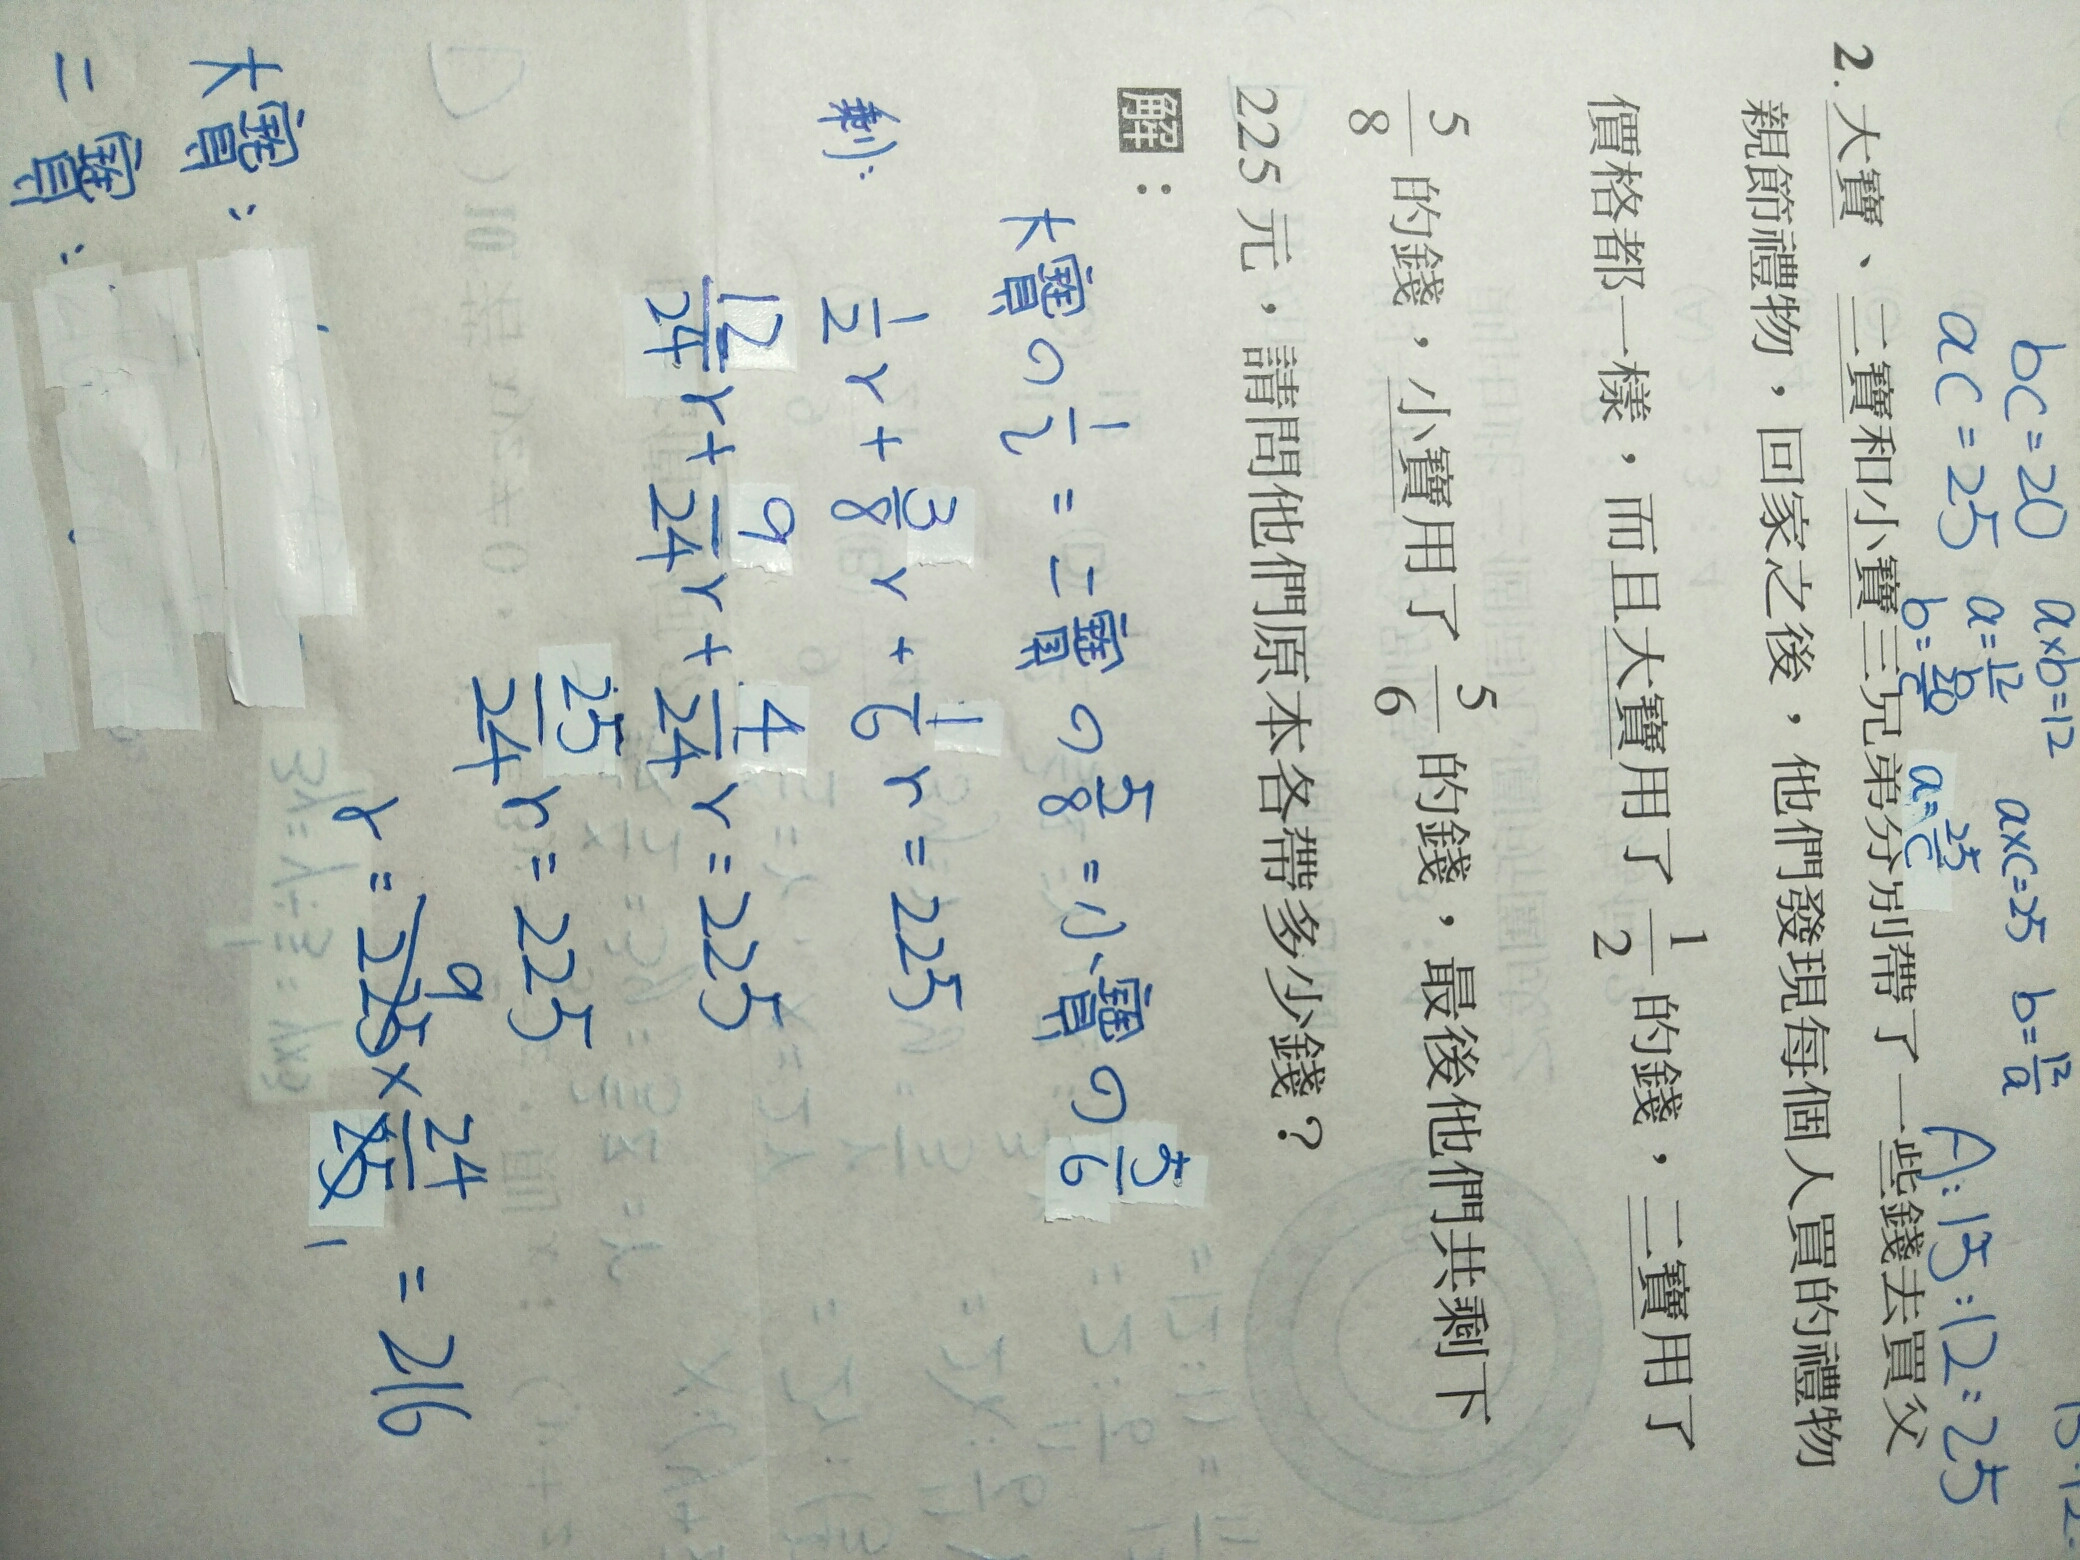 bc=20 a×b=12 a×c=25 b=12/a 15:12:
ac=25 a=12/b b=20/c a=25/c A:15:12:25
2.大寶、二寶和小寶三兄弟分別帶了一些錢去買父
親節禮物，回家之後，他們發現每個人買的禮物
價格都一樣，而且大寶用了 1/2 的錢，二寶用了
5/8 的錢，小寶用了 5/6 的錢，最後他們共剩下
225 元，請問他們原本各帶多少錢？
解：
大寶の1/2=二寶の5/8=小寶の5/6
剩：1/2r+3/8r+1/6r=225
12/24r+9/24r+4/24r=225
25/24r=225
r=225×24/25=216
9
1
大寶：
二寶：